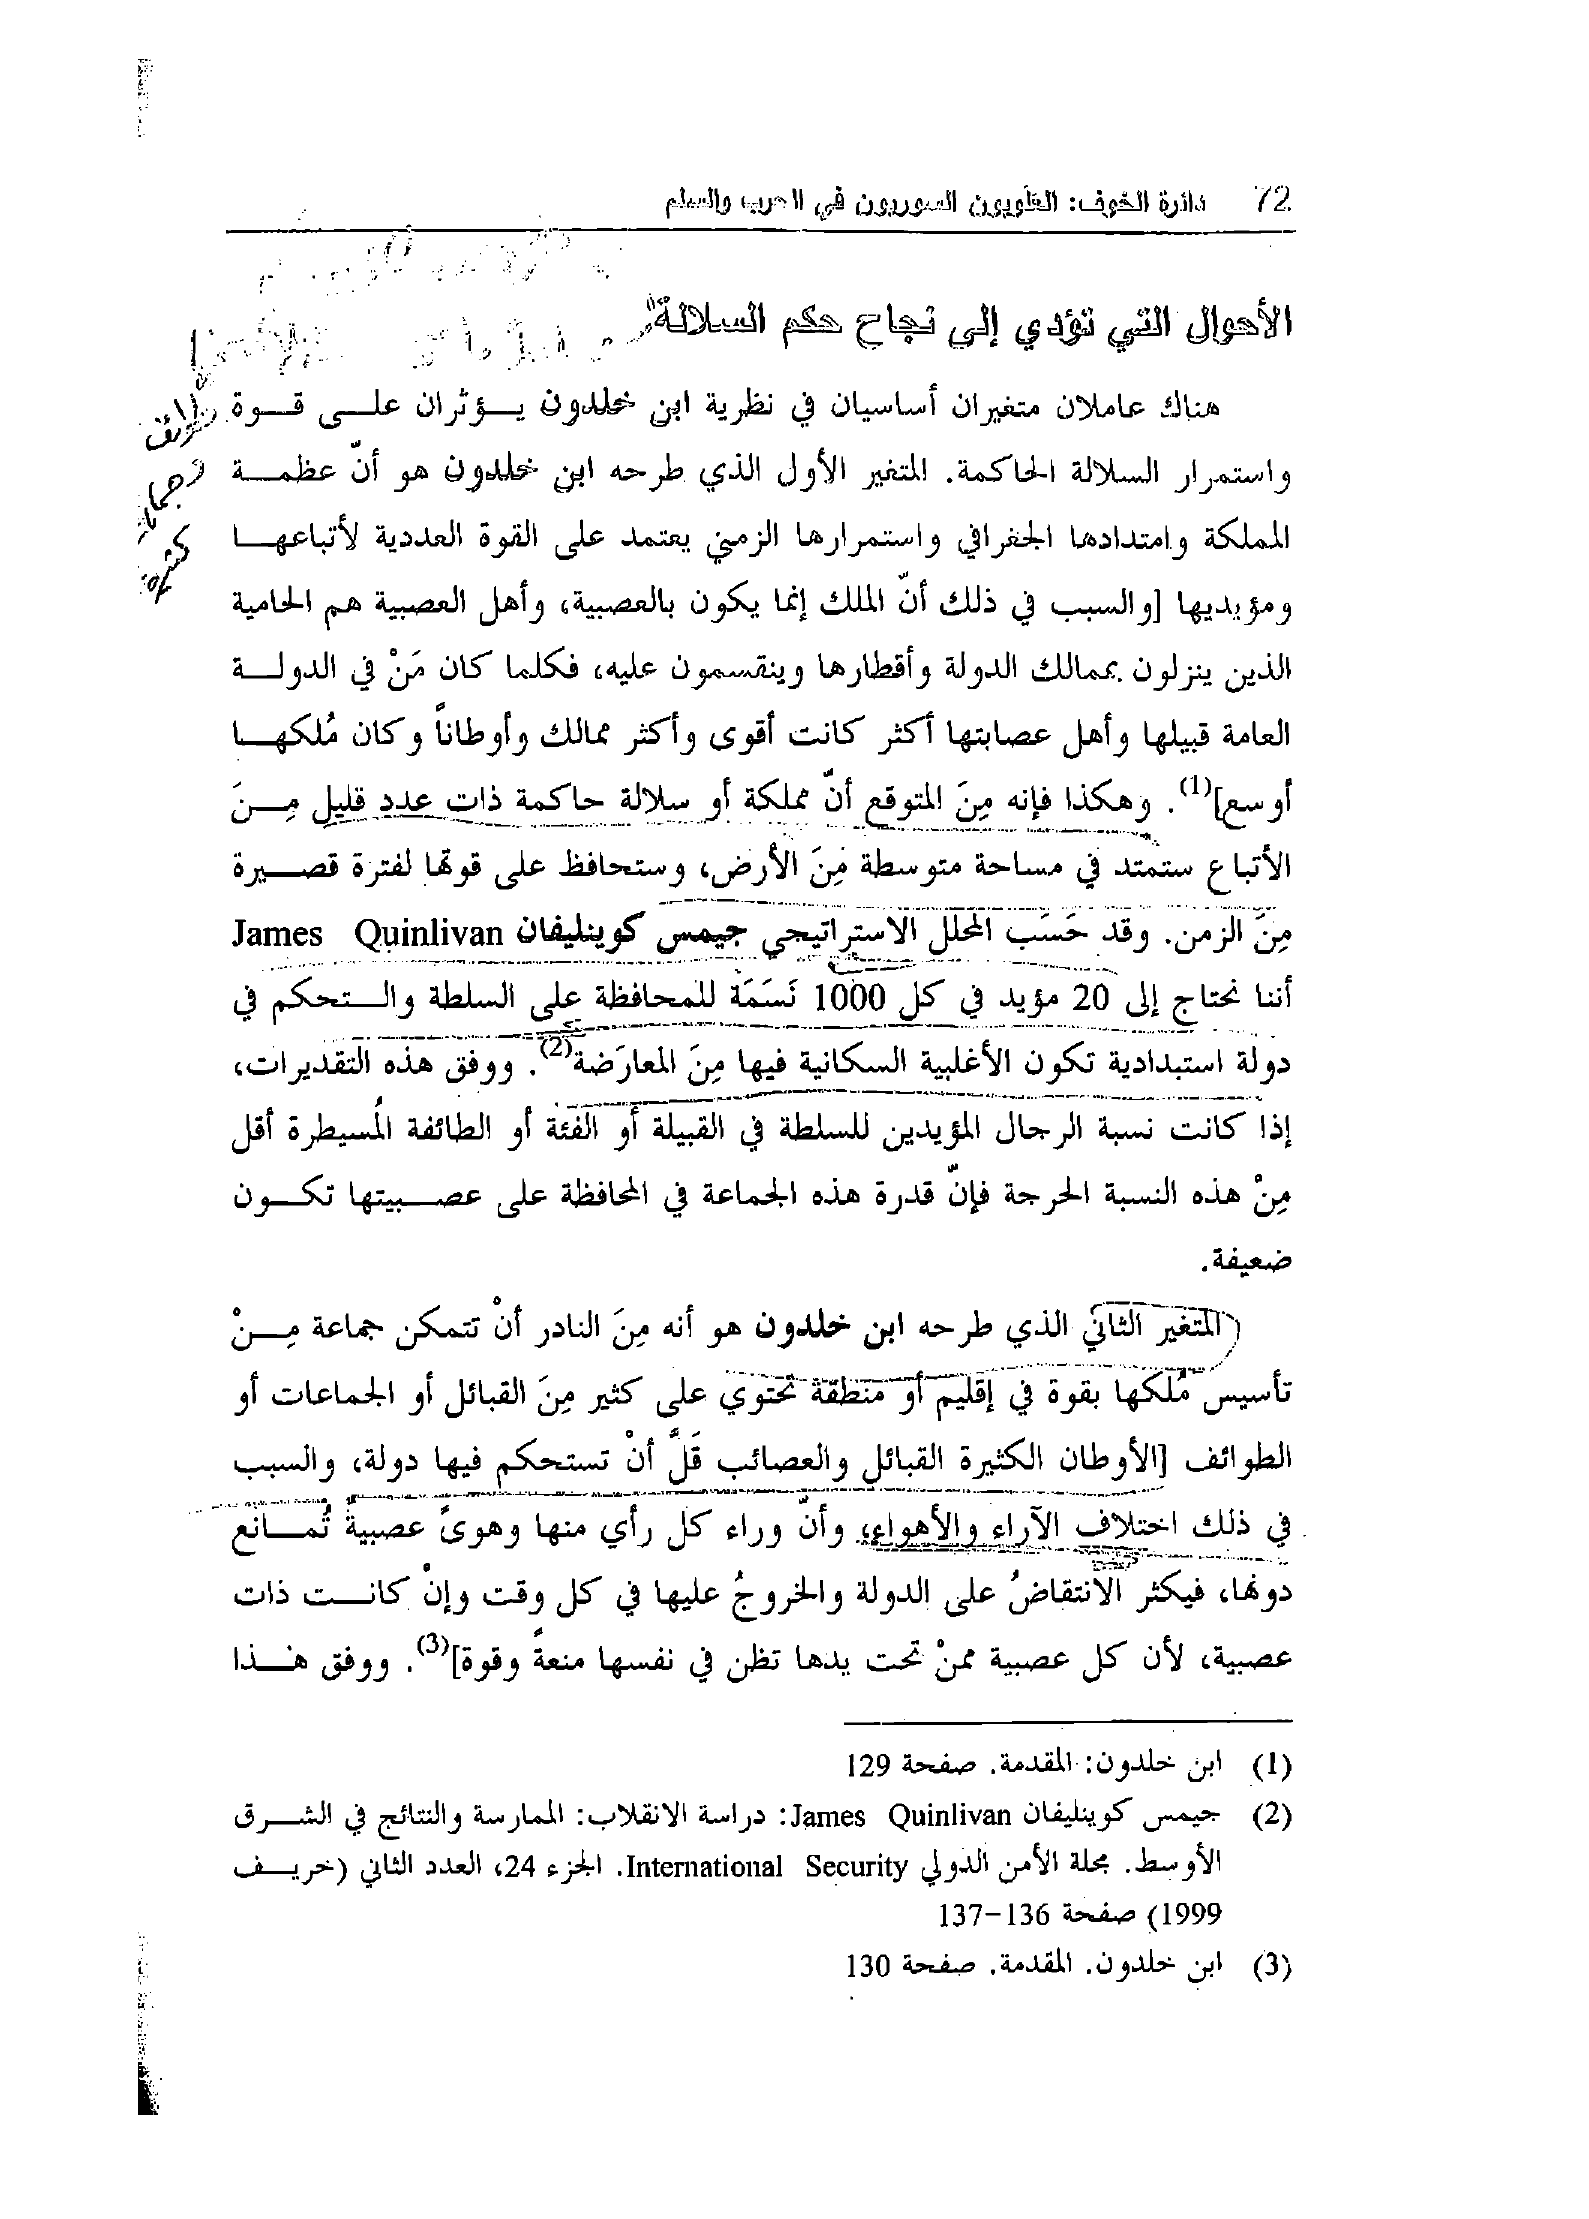 72 دائرة الخوف: العلويون السوريون في الحرب والسلم
الأحوال التي تؤدي إلى نجاح حكم السلالة
هناك عاملان متغيران أساسيان في نظرية ابن خلدون يؤثران على قوة
واستمرار السلالة الحاكمة. المتغير الأول الذي طرحه ابن خلدون هو أنّ عظمة
المملكة وامتدادها الجغرافي واستمرارها الزمني يعتمد على القوة العددية لأتباعها
ومؤيديها [والسبب في ذلك أنّ الملك إنما يكون بالعصبية، وأهل العصبية هم الحامية
الذين ينزلون بممالك الدولة وأقطارها وينقسمون عليه، فكلما كان مَنْ في الدولة
العامة قبيلها وأهل عصابتها أكثر كانت أقوى وأكثر ممالك وأوطاناً وكان مُلكها
أوسع](1). وهكذا فإنه مِنَ المتوقع أنّ مملكة أو سلالة حاكمة ذات عدد قليل مِنَ
الأتباع ستمتد في مساحة متوسطة مِنَ الأرض، وستحافظ على قوتها لفترة قصيرة
مِنَ الزمن. وقد حَسَب المحلل الاستراتيجي جيمس كوينليفان James Quinlivan
أننا نحتاج إلى 20 مؤيد في كل 1000 نَسَمَة للمحافظة على السلطة والتحكم في
دولة استبدادية تكون الأغلبية السكانية فيها مِنَ المعارَضة(2). ووفق هذه التقديرات،
إذا كانت نسبة الرجال المؤيدين للسلطة في القبيلة أو الفئة أو الطائفة المُسيطرة أقل
مِنْ هذه النسبة الحرجة فإنّ قدرة هذه الجماعة في المحافظة على عصبيتها تكون
ضعيفة.
المتغير الثاني الذي طرحه ابن خلدون هو أنه مِنَ النادر أنْ تتمكن جماعة مِنْ
تأسيس مُلكها بقوة في إقليم أو منطقة تحتوي على كثير مِنَ القبائل أو الجماعات أو
الطوائف [الأوطان الكثيرة القبائل والعصائب قَلَّ أنْ تستحكم فيها دولة، والسبب
في ذلك اختلاف الآراء والأهواء، وأنّ وراء كل رأي منها وهوىً عصبيةٌ تُمانع
دونها، فيكثر الانتقاضُ على الدولة والخروجُ عليها في كل وقت وإنْ كانت ذات
عصبية، لأن كل عصبية ممنْ تحت يدها تظن في نفسها منعةً وقوة](3). ووفق هذا
طوائف
وجماعات
كثيرة
(1) ابن خلدون: المقدمة. صفحة 129
(2) جيمس كوينليفان James Quinlivan: دراسة الانقلاب: الممارسة والنتائج في الشرق
الأوسط. مجلة الأمن الدولي International Security. الجزء 24، العدد الثاني (خريف
1999) صفحة 136-137
(3) ابن خلدون. المقدمة. صفحة 130